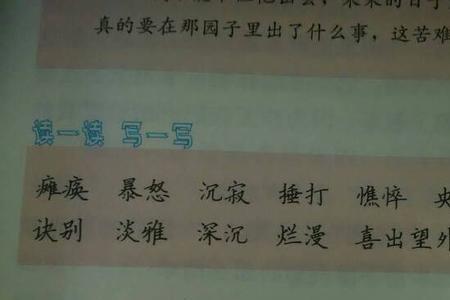 真的要在那园子里出了什么事，这苦难
读一读 写一写
瘫痪 暴怒 沉寂 捶打 憔悴 央
诀别 淡雅 深沉 烂漫 喜出望外